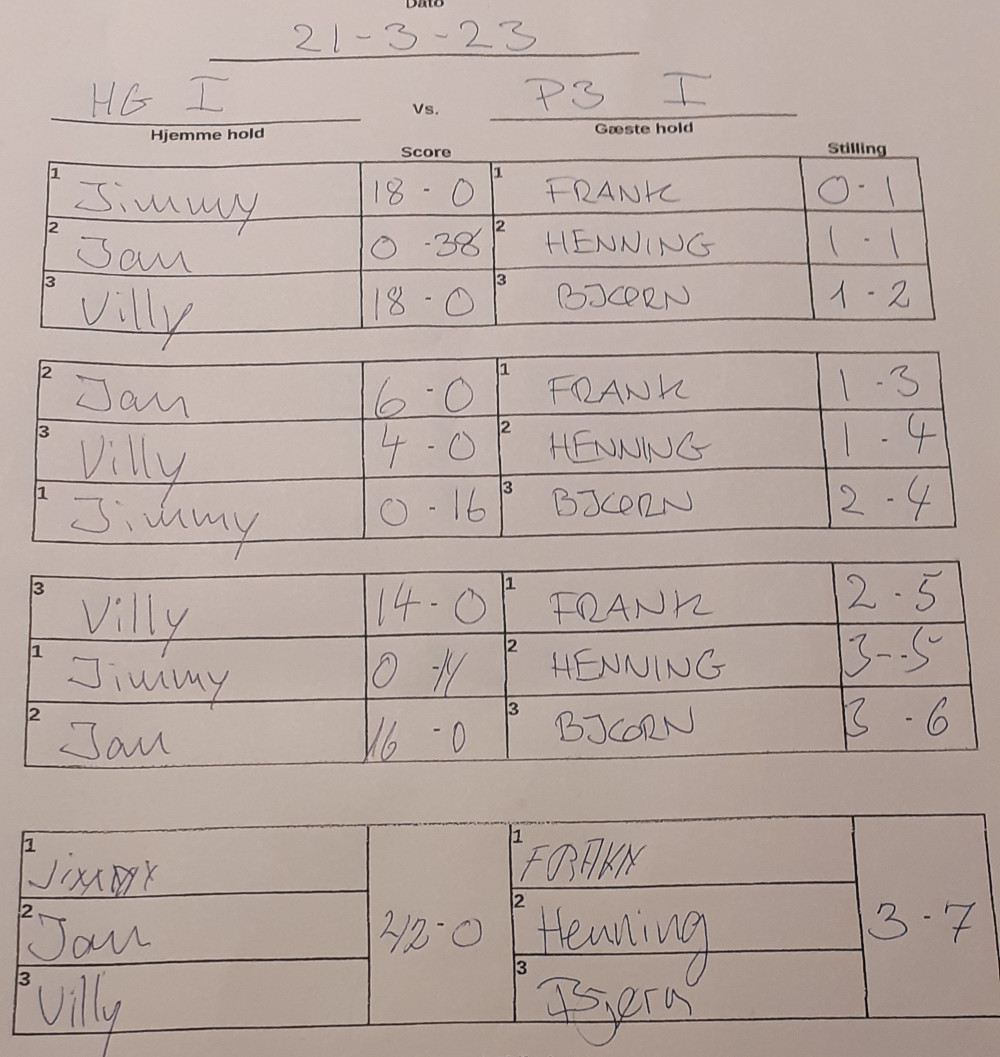 Dato
21-3-23
HG I Vs. P3 I
Hjemme hold Gæste hold
Score Stilling
1 Jimmy 18 - 0 1 FRANK 0 - 1
2 Jan 0 - 38 2 HENNING 1 - 1
3 Villy 18 - 0 3 BJCORN 1 - 2
2 Jan 6 - 0 1 FRANK 1 - 3
3 Villy 4 - 0 2 HENNING 1 - 4
1 Jimmy 0 - 16 3 BJCORN 2 - 4
3 Villy 14 - 0 1 FRANK 2 - 5
1 Jimmy 0 - 11 2 HENNING 3 - 5
2 Jan 16 - 0 3 BJCORN 3 - 6
1 1
2 Jan - 0 2 Henning 3 - 7
3 Villy 3 Bjørn